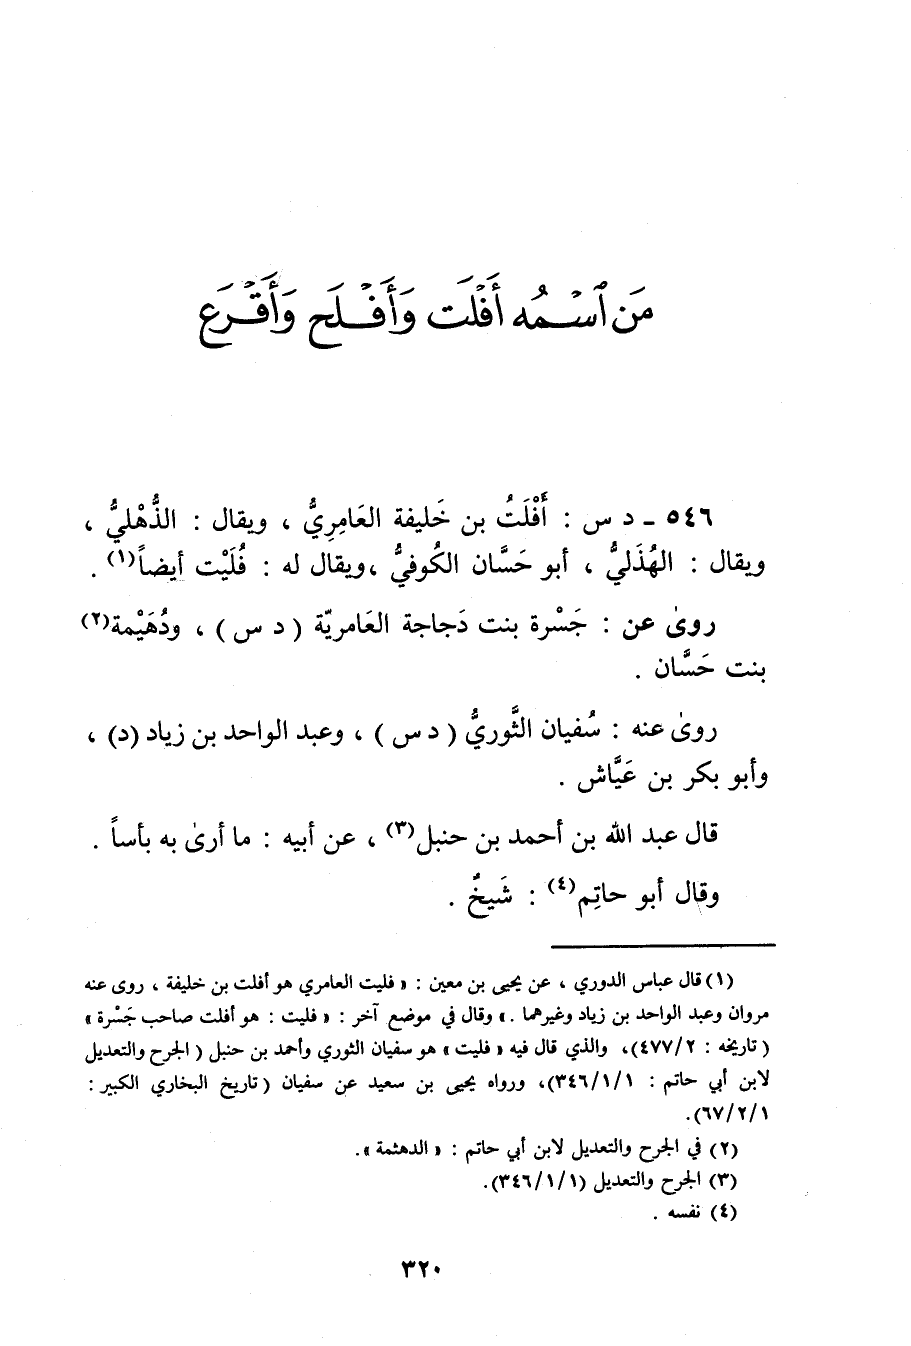 مَن ٱسْمُه أَفْلَت وَأَفْلَح وَأَقْرَع
٥٤٦ ـ د س : أَفْلَتُ بن خَليفة العَامِرِيُّ ، ويقال : الذُّهْليُّ ،
ويقال : الهُذَليُّ ، أبو حَسَّان الكُوفيُّ ،ويقال له : فُلَيْت أيضاً(١) .
روىٰ عن : جَسْرة بنت دَجاجة العَامريّة ( د س ) ، ودُهَيْمة(٢)
بنت حَسَّان .
روىٰ عنه : سُفيان الثَّوريُّ ( د س ) ، وعبد الواحد بن زياد (د) ،
وأبو بكر بن عَيَّاش .
قال عبد الله بن أحمد بن حنبل(٣) ، عن أبيه : ما أرىٰ به بأساً .
وقال أبو حاتِم(٤) : شَيخٌ .
(١) قال عباس الدوري ، عن يحيى بن معين : « فليت العامري هو أفلت بن خليفة ، روى عنه
مروان وعبد الواحد بن زياد وغيرهما .» وقال في موضع آخر : « فليت : هو أفلت صاحب جَسْرة »
( تاريخه : ٤٧٧/٢)، والذي قال فيه « فليت » هو سفيان الثوري وأحمد بن حنبل ( الجرح والتعديل
لابن أبي حاتم : ٣٤٦/١/١)، ورواه يحيى بن سعيد عن سفيان ( تاريخ البخاري الكبير :
٦٧/٢/١).
(٢) في الجرح والتعديل لابن أبي حاتم : « الدهثمة ».
(٣) الجرح والتعديل (٣٤٦/١/١).
(٤) نفسه .
٣٢٠